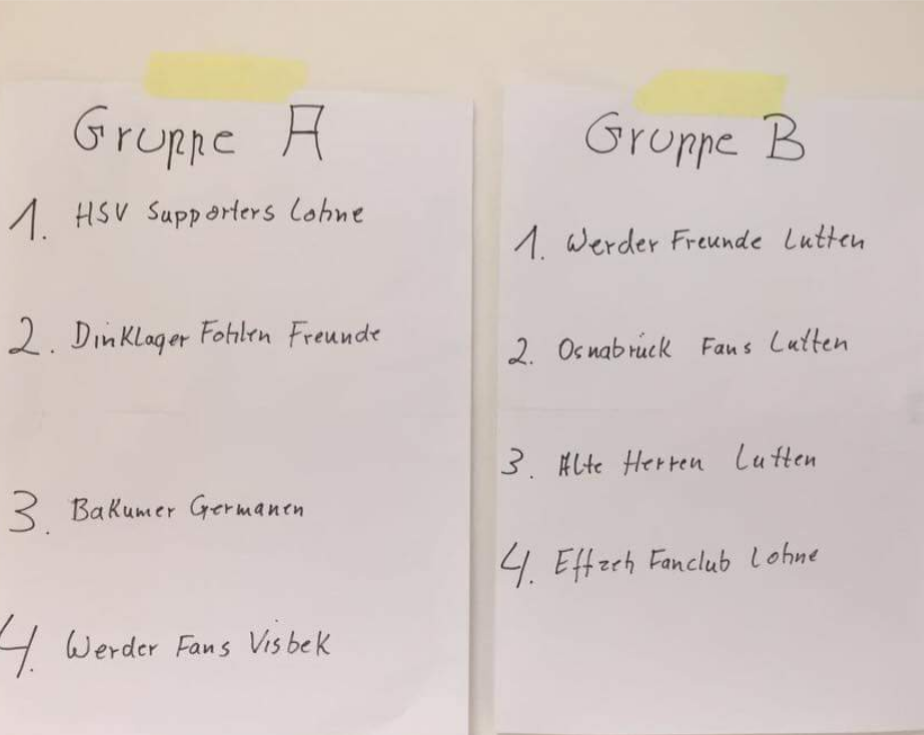 Gruppe A
1. HSV Supporters Lohne
2. Dinklager Fohlen Freunde
3. Bakumer Germanen
4. Werder Fans Visbek
Gruppe B
1. Werder Freunde Lutten
2. Osnabrück Fans Lutten
3. Alte Herren Lutten
4. Effzeh Fanclub Lohne